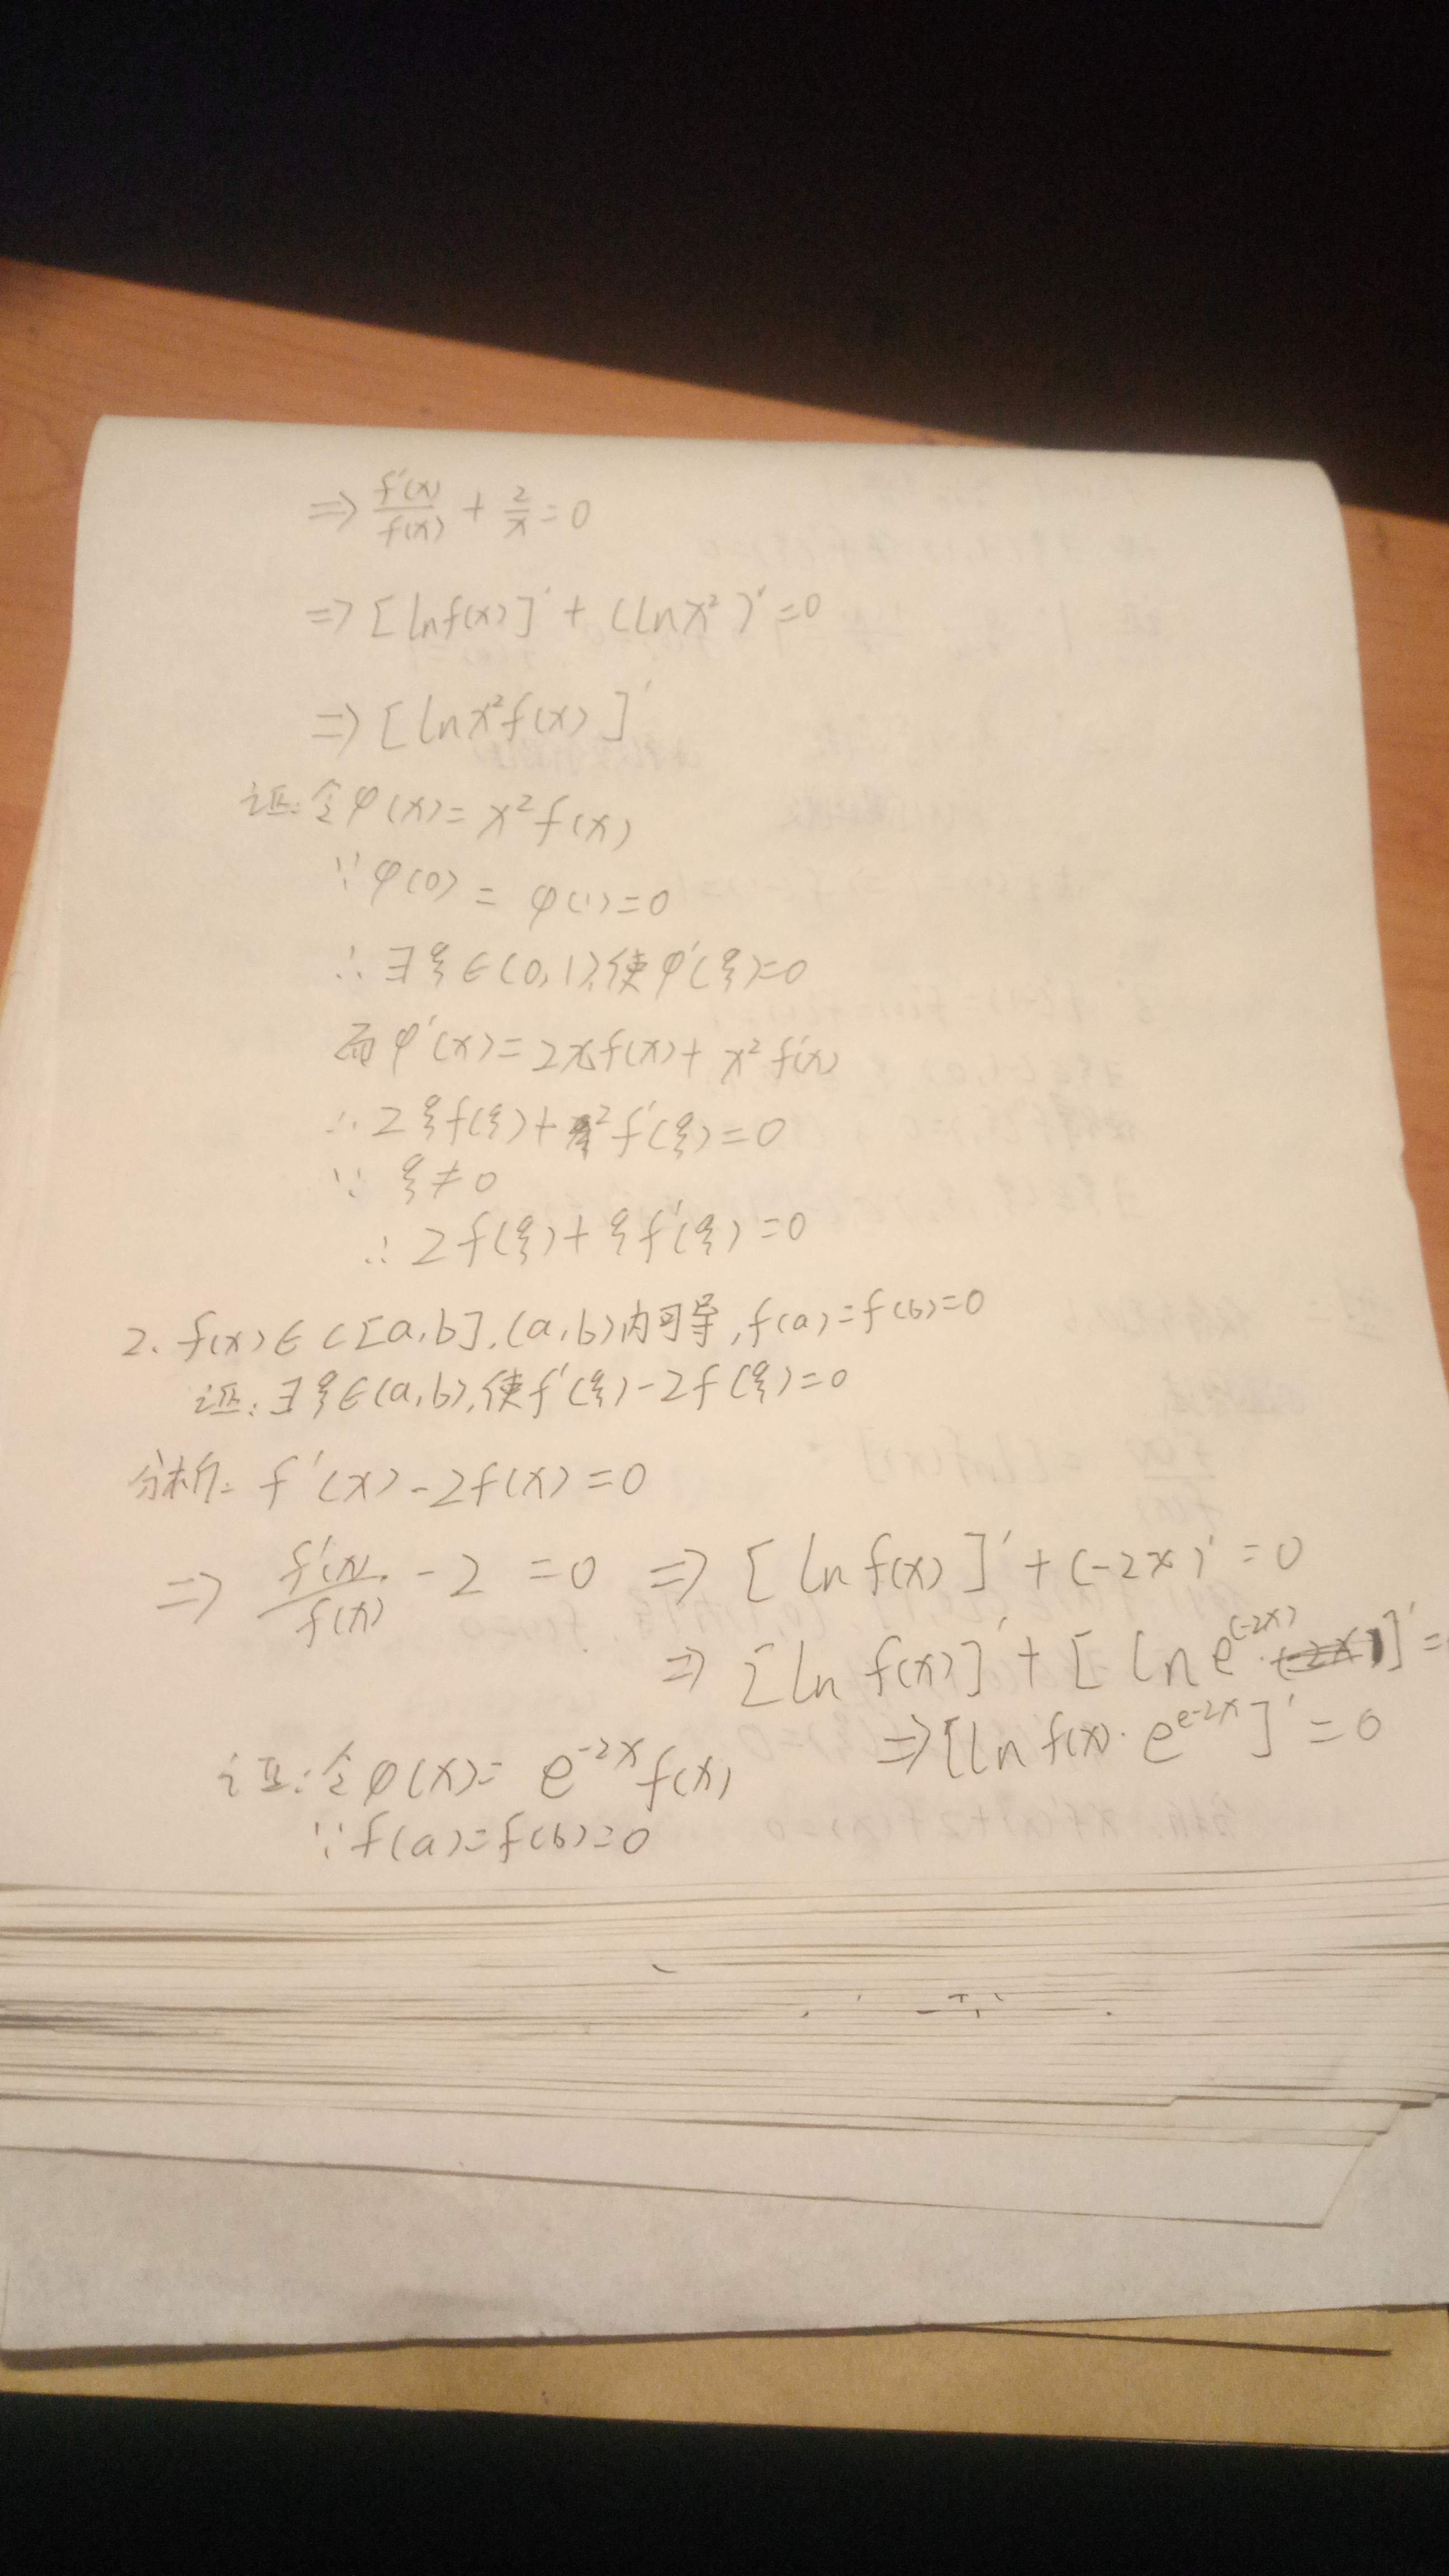 ⇒ f'(x)/f(x) + 2/x = 0
⇒ [lnf(x)]' + (lnx²)' = 0
⇒ [lnx²f(x)]'
证:令φ(x)= x²f(x)
∵ φ(0) = φ(1)=0
∴ ∃ξ∈(0,1),使φ'(ξ)=0
而φ'(x)=2xf(x)+ x²f'(x)
∴ 2ξf(ξ)+ξ²f'(ξ)=0
∵ ξ≠0
∴ 2f(ξ)+ξf'(ξ)=0
2. f(x)∈C[a,b],(a,b)内可导,f(a)=f(b)=0
证:∃ξ∈(a,b),使f'(ξ)-2f(ξ)=0
分析: f'(x)-2f(x)=0
⇒ f'(x)/f(x) - 2 = 0 ⇒ [lnf(x)]' + (-2x)' = 0
⇒ [ln f(x)]' + [ln e^(-2x)]' =
⇒ [ln f(x)·e^{e-2x}]' = 0
证:令φ(x)= e^{-2x}f(x)
∵ f(a)=f(b)=0